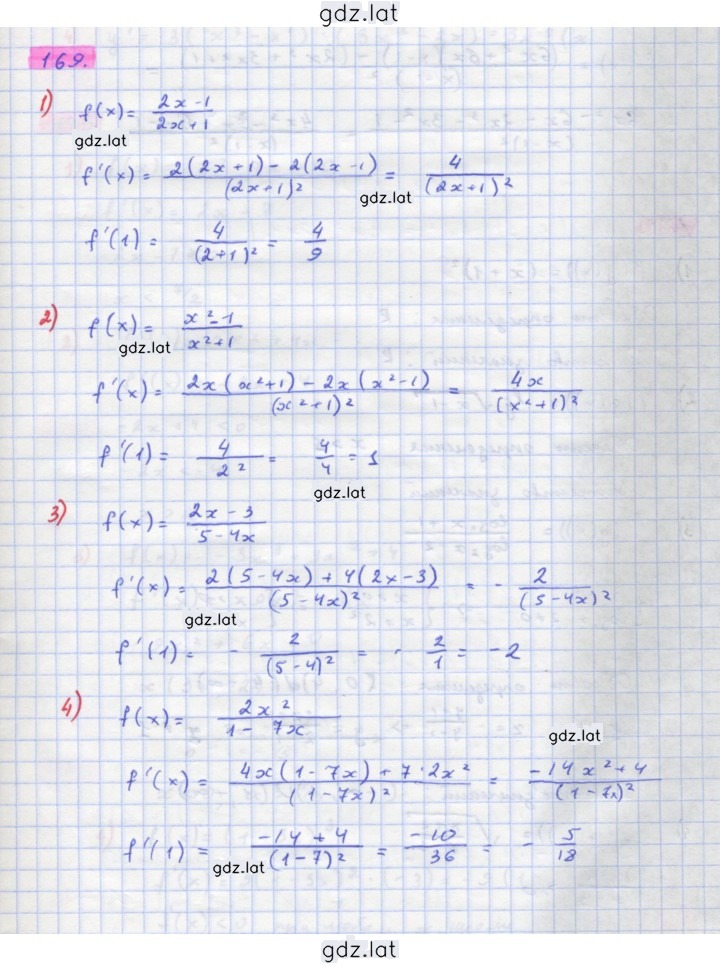 gdz.lat
169.
1) f(x) = (2x-1)/(2x+1)
gdz.lat
f'(x) = (2(2x+1) - 2(2x-1))/(2x+1)² = 4/(2x+1)²
gdz.lat
f'(1) = 4/(2+1)² = 4/9
2) f(x) = (x²-1)/(x²+1)
gdz.lat
f'(x) = (2x(x²+1) - 2x(x²-1))/(x²+1)² = 4x/(x²+1)²
f'(1) = 4/2² = 4/4 = 1
gdz.lat
3) f(x) = (2x-3)/(5-4x)
f'(x) = (2(5-4x) + 4(2x-3))/(5-4x)² = - 2/(5-4x)²
gdz.lat
f'(1) = - 2/(5-4)² = - 2/1 = -2
4) f(x) = 2x²/(1-7x)
gdz.lat
f'(x) = (4x(1-7x) + 7·2x²)/(1-7x)² = (-14x²+4)/(1-7x)²
f'(1) = (-14+4)/(1-7)² = -10/36 = - 5/18
gdz.lat
gdz.lat